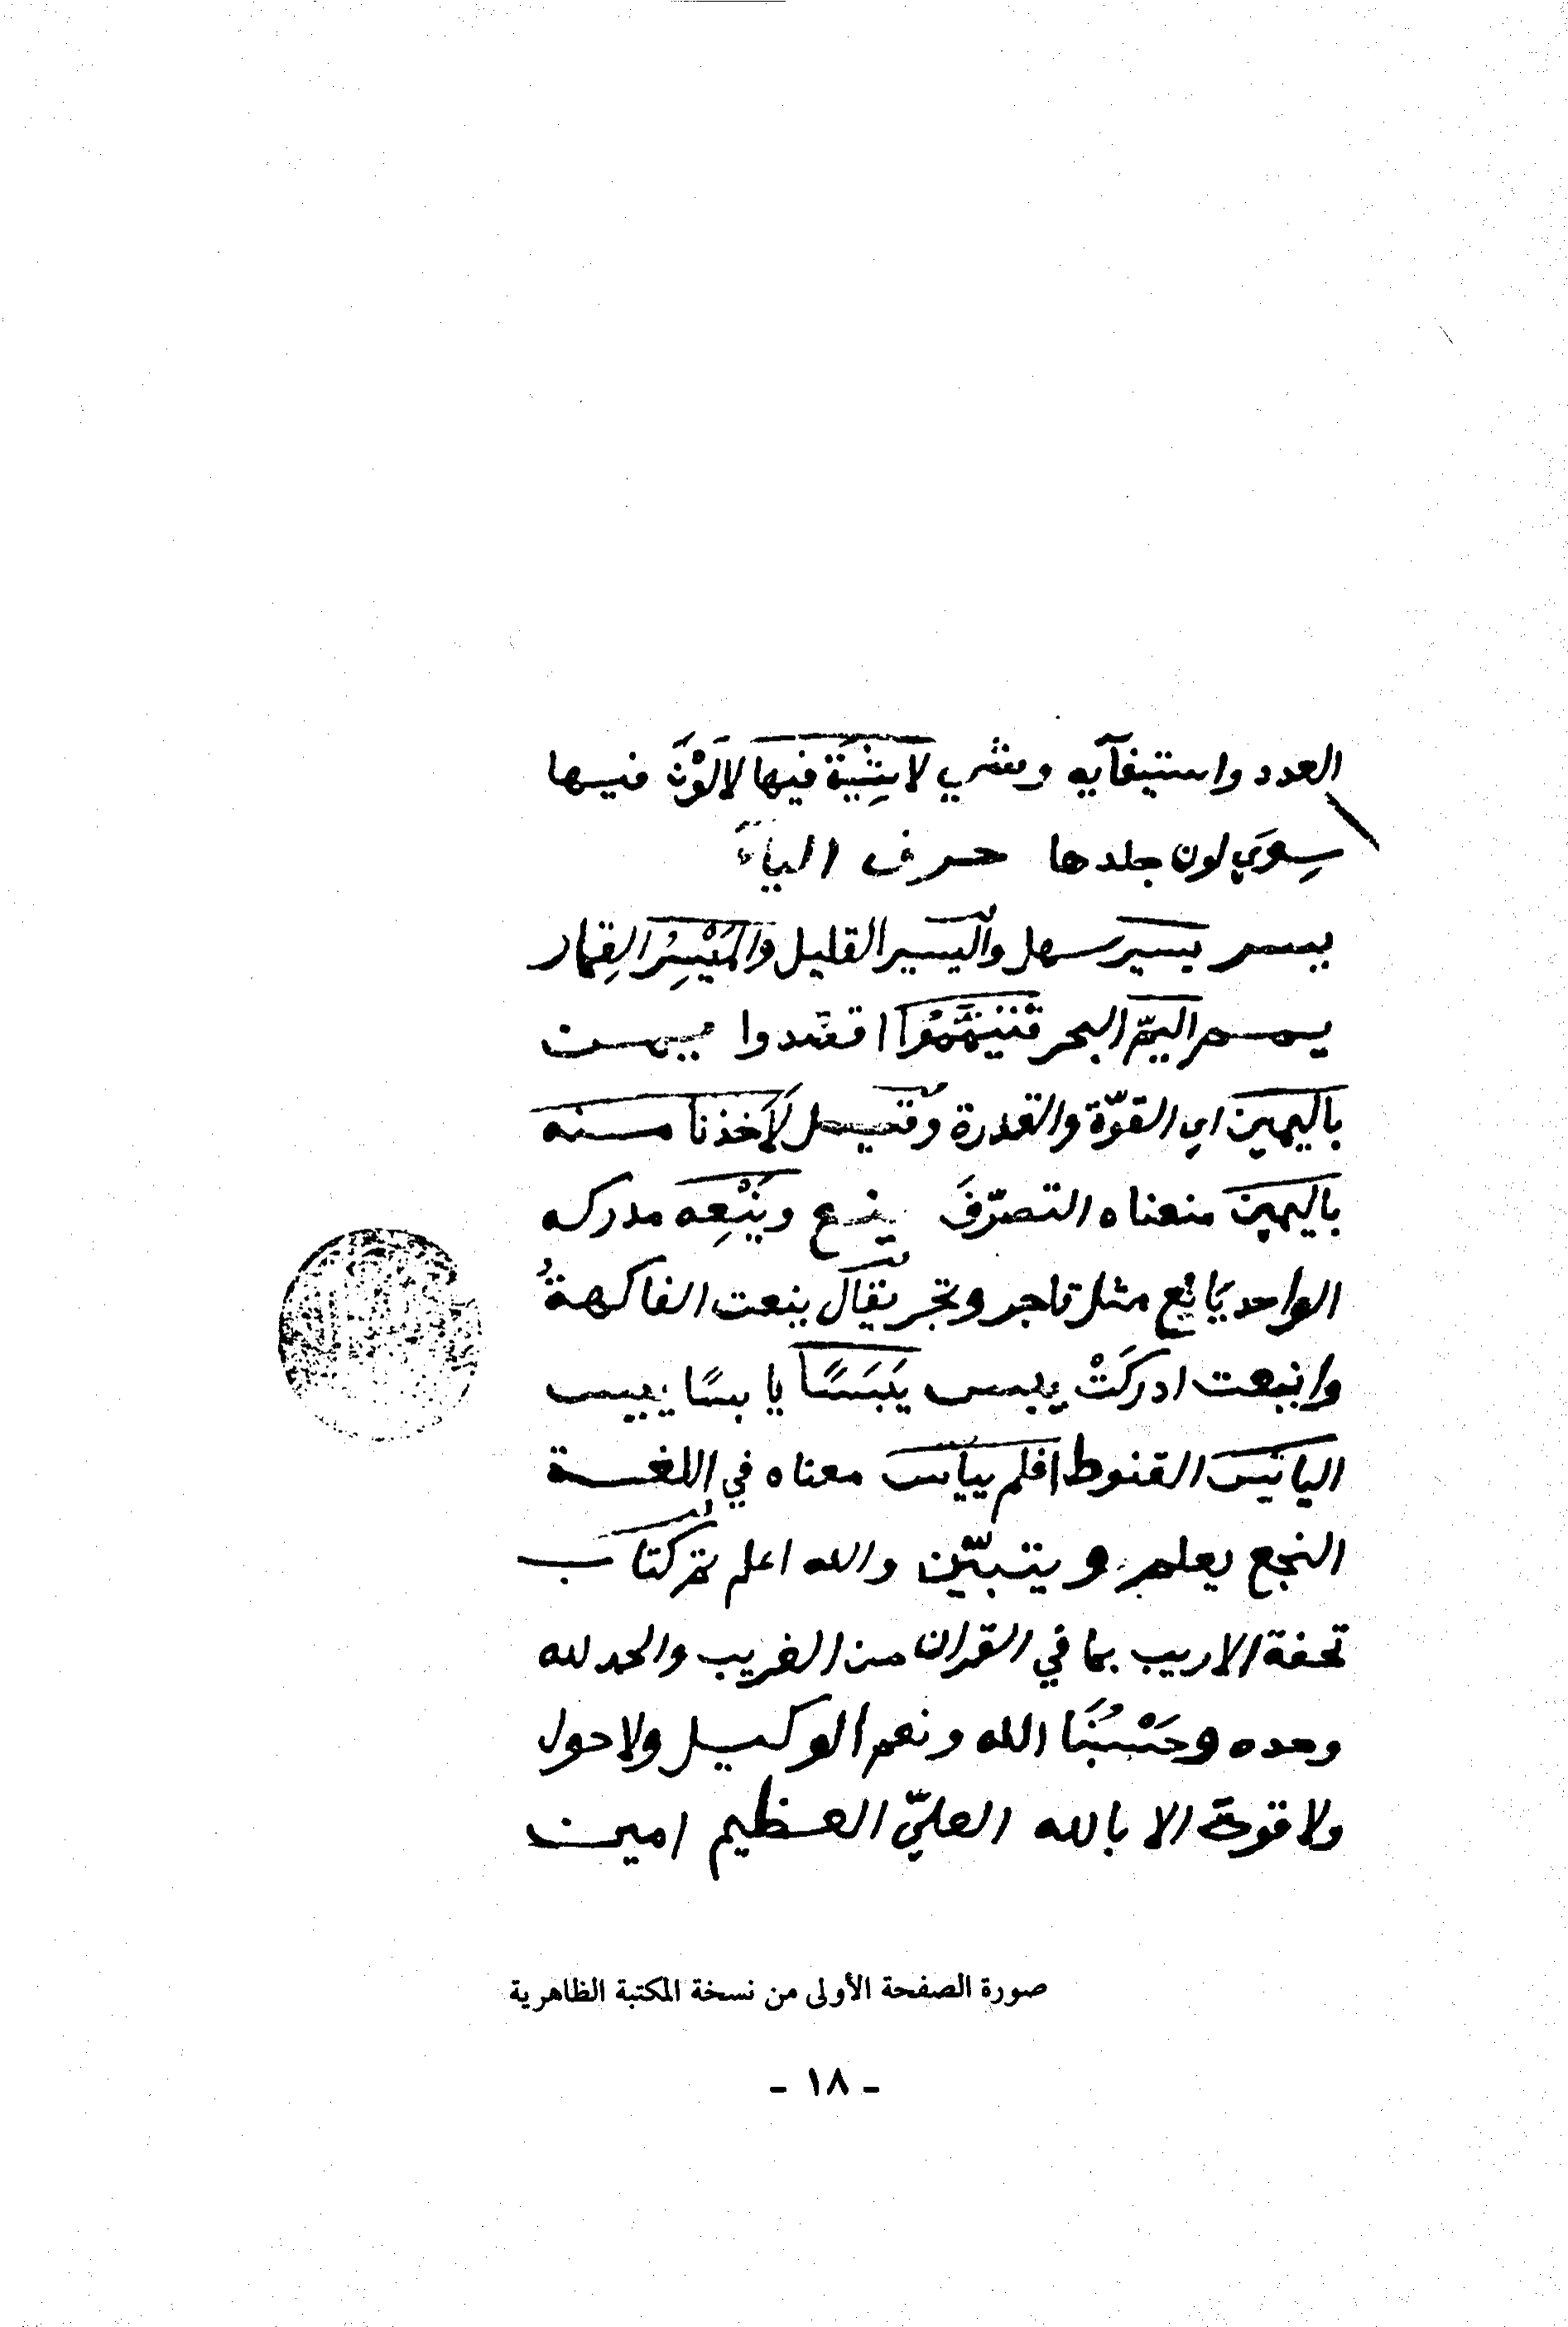 العدد واستيفآيه وشي لاشِيَة فيها لالَوْنَ فيها
سِوَي لون جلدها حرف الياء
يسر يسير سهل واليسير القليل والمَيْسِرُ القِمار
يمم اليمّ البحر فتَيَمَّمُوا اقصدوا يمن
باليمين اي القوّة والقدرة وقيل لَأَخذنا منه
باليمين منعناه التصرّفَ ينع ويَنْعِه مدركه
الواحد يَانِع مثل تاجر وتجر يقال ينعت الفاكهةُ
واينعت ادركَتْ يبس يَبَسًا يابسًا ييس
اليائس القنوط افلم ييأس معناه في اللغة
النخع يعلم ويتبيّن والله اعلم تم كتاب
تحفة الاريب بما في القران من الغريب والحمد لله
وحده وحَسْبُنَا الله ونعم الوكيل ولا حول
ولا قوة الا بالله العليّ العظيم امين
صورة الصفحة الأولى من نسخة المكتبة الظاهرية
- ١٨ -